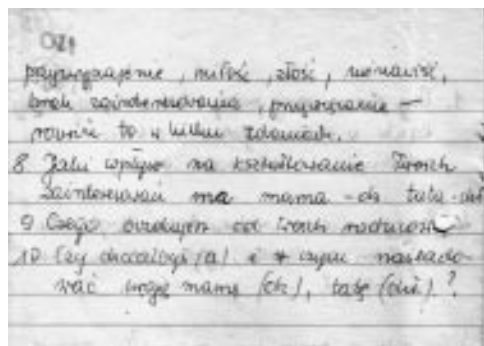 przywiązanie, miłość, złość, nienawiść,
brak zainteresowania, przywiązanie –
rozwiń to w kilku zdaniach.
8 Jaki wpływ na kształtowanie Twoich
zainteresowań ma mama - ch tata - ch
9 Czego oczekujesz od Twoich rodziców
10 Czy chciałbyś (a) i w czym naślado-
wać swoją mamę (ch), tatę (ch)?